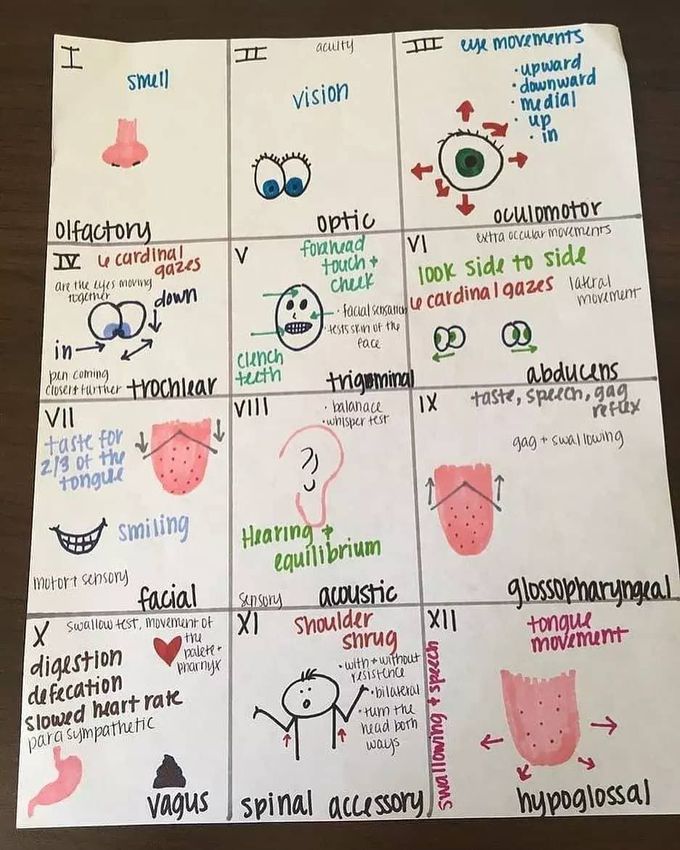 I
smell
olfactory
II
acuity
vision
optic
III
eye movements
• upward
• downward
• medial
• up
• in
oculomotor
IV
6 cardinal
gazes
are the eyes moving
together
down
in
pen coming
closer + further
trochlear
V
forehead
touch +
cheek
• facial sensation
• tests skin of the
face
clench
teeth
trigeminal
VI
extra occular movements
look side to side
6 cardinal gazes
lateral
movement
abducens
VII
taste for
2/3 of the
tongue
smiling
motor + sensory
facial
VIII
• balanace
• whisper test
Hearing +
equilibrium
sensory
acoustic
IX
taste, speech, gag
reflex
gag + swallowing
glossopharyngeal
X
swallow test, movement of
the
palete +
pharnyx
digestion
defecation
slowed heart rate
para sympathetic
vagus
XI
shoulder
shrug
• with + without
resistence
• bilateral
• turn the
head both
ways
spinal accessory
XII
tongue
movement
swallowing + speech
hypoglossal